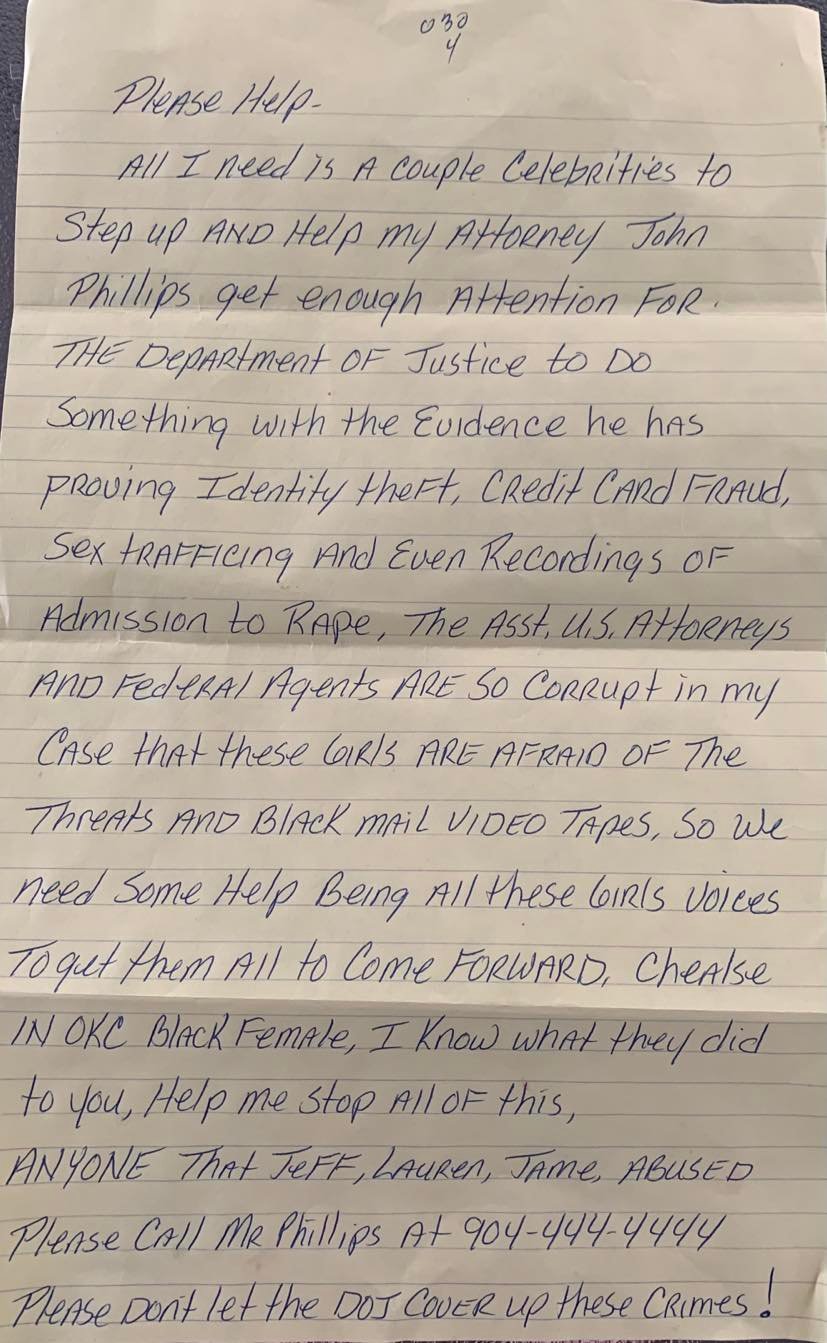 030
4
Please Help-
All I need is A couple Celebrities to
Step up AND Help my Attorney John
Phillips get enough Attention FOR.
THE Department OF Justice to DO
Something with the Evidence he has
proving Identity theft, Credit CARD FRAUd,
Sex tRAFFICing And Even Recordings OF
Admission to RApe, The Asst. U.S. Attorneys
AND FedeRAl Agents ARE SO CORRupt in my
CASe thAt these GIRls ARE AFRAID OF The
ThreAts AND BlAck mAiL VIDEO TApes, So We
need Some Help Being All these GIRls Voices
To get them All to Come FORWARD. CheAlse
IN OKC BlAck FemAle, I Know whAt they did
to you, Help me Stop All OF this,
ANYONE ThAt JeFF, LAUREN, JAMe, ABUSED
PleAse CAll MR Phillips At 904-444-4444
PleAse Don't let the DOJ COVER up these CRImes!